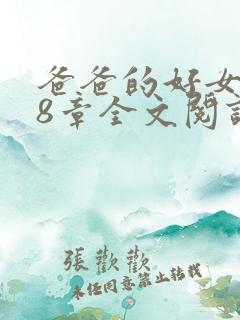 爸爸的好女
8章全文閱讀
張歡歡
未經同意禁止轉載